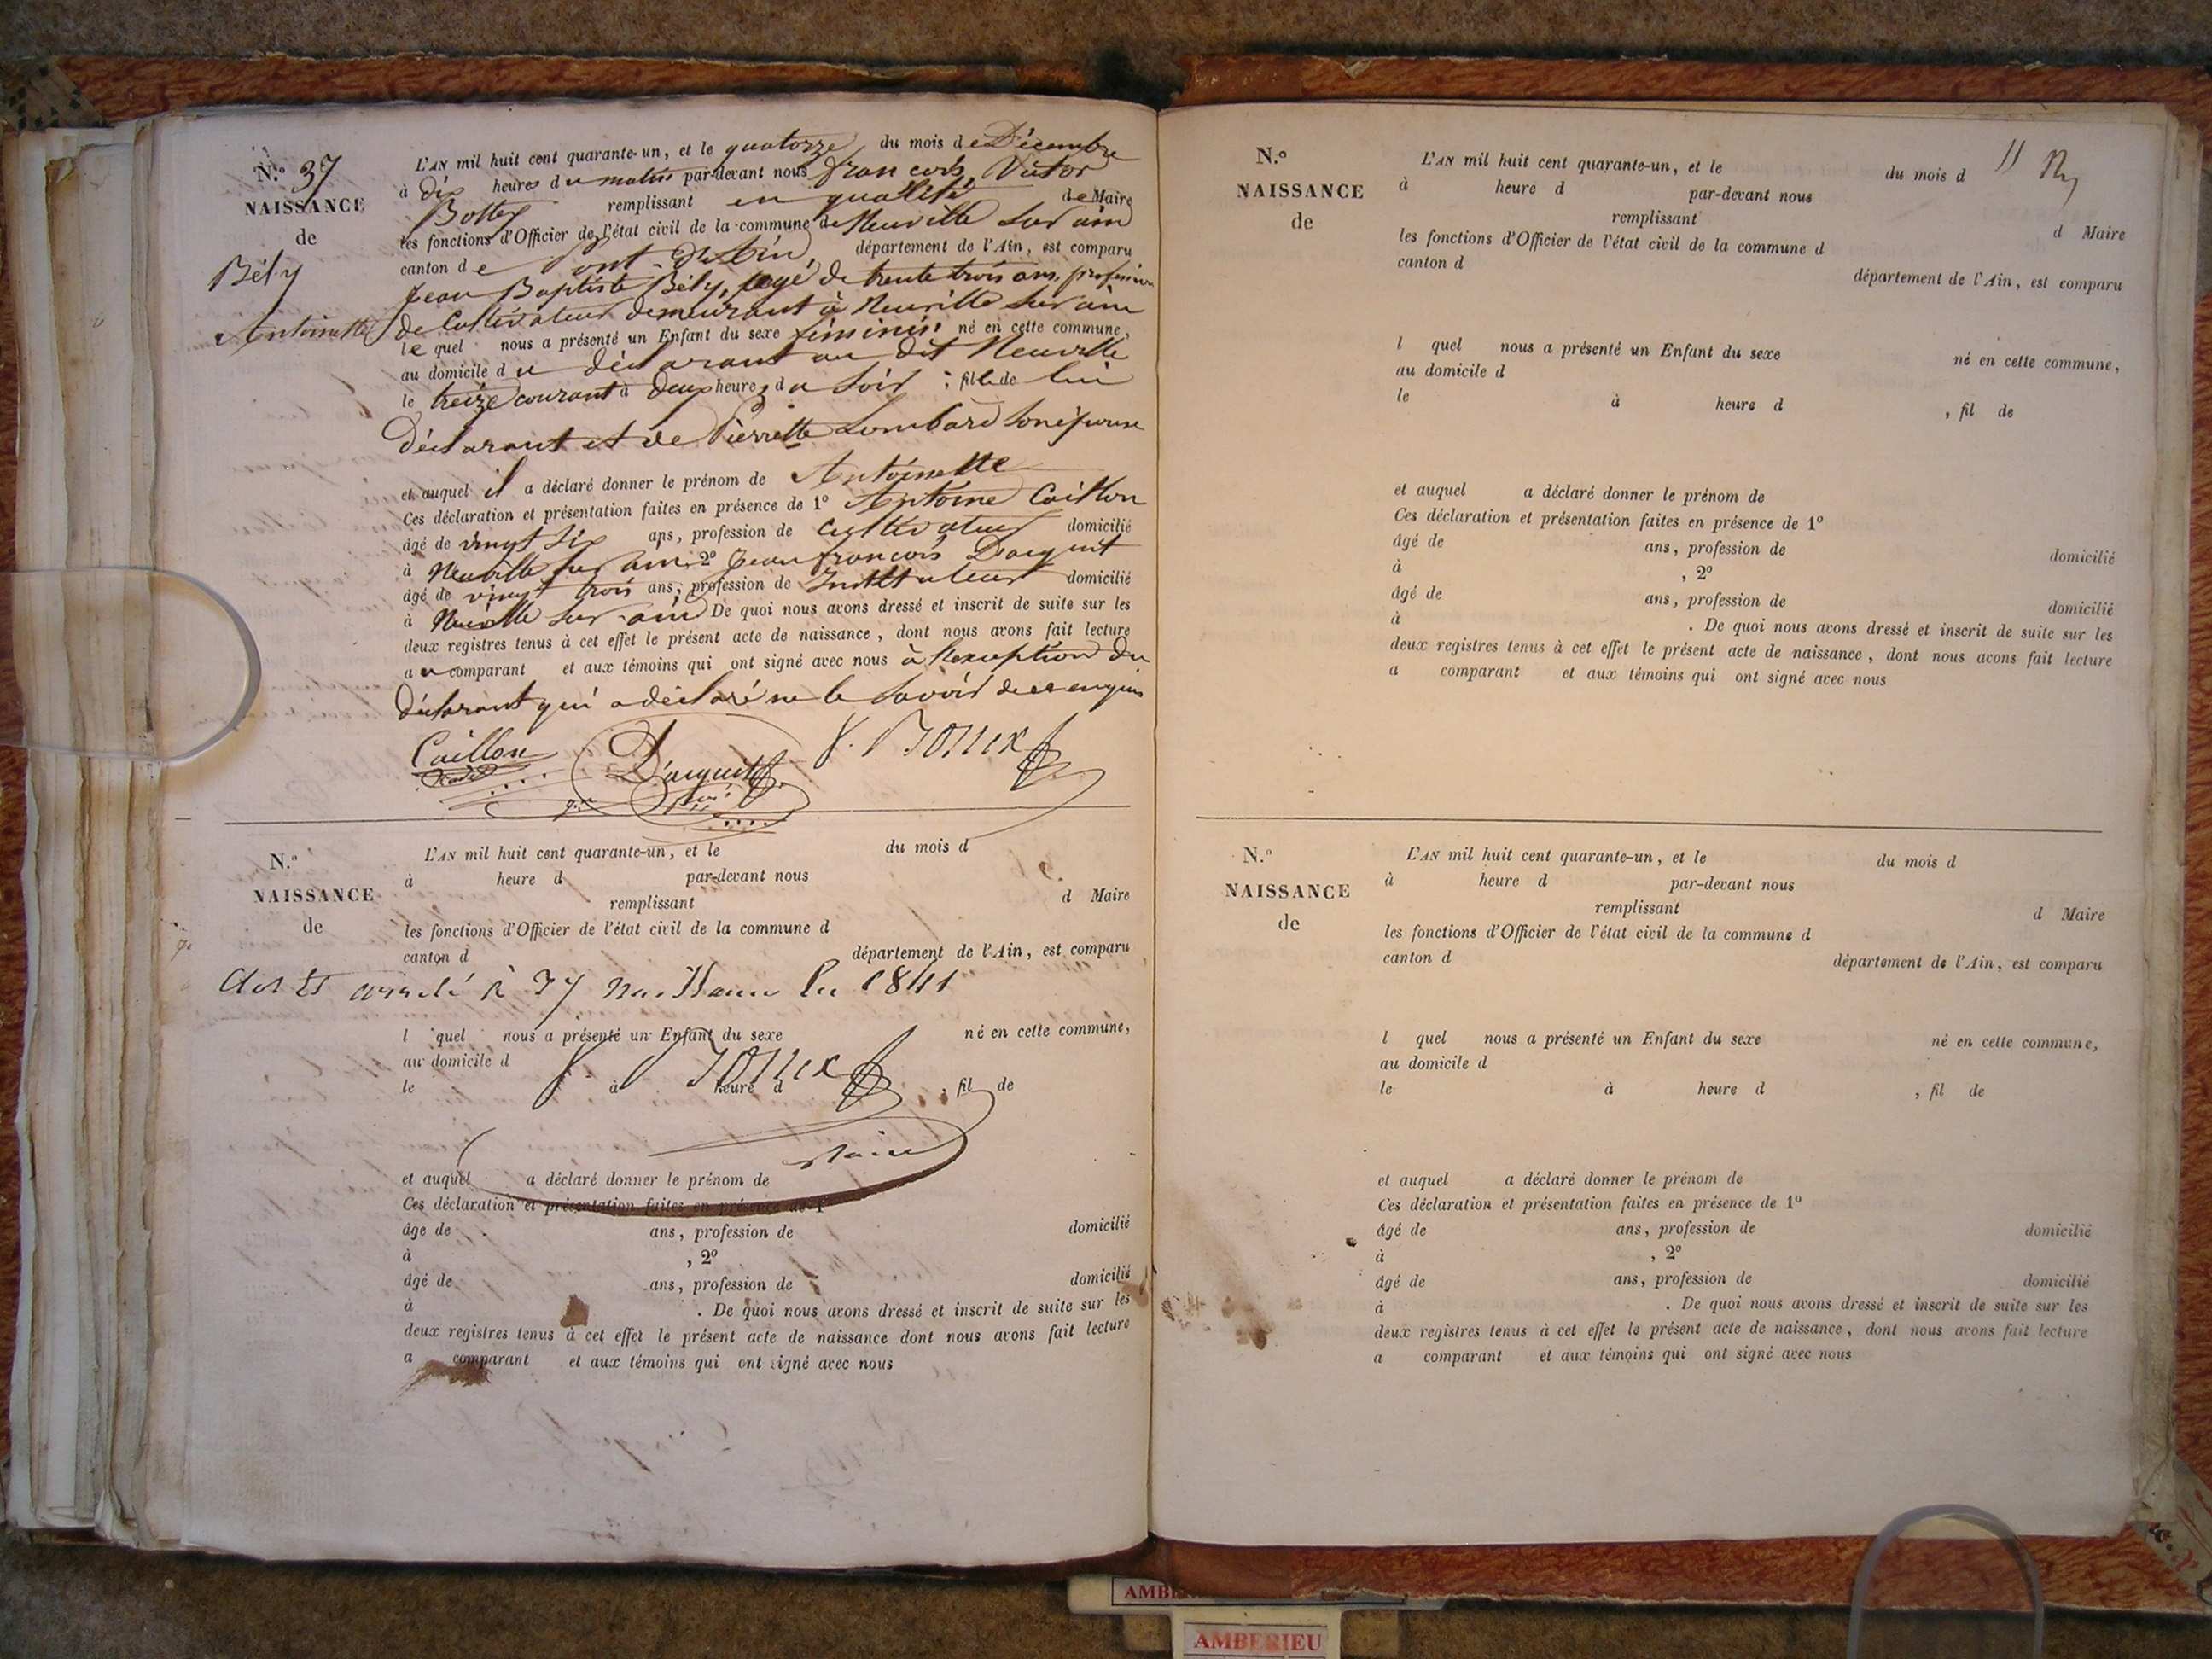 N.º 37
NAISSANCE
de
Bély
Antoinette
L'AN mil huit cent quarante-un, et le quatorze du mois de Décembre
à dix heures du matin par-devant nous françois, Victor
Bottex remplissant en qualité de Maire
les fonctions d'Officier de l'état civil de la commune de Neuville sur ain
canton de Pont-d'ain, département de l'Ain, est comparu
Jean Baptiste Bély, agé de trente trois ans, profession
de Cultivateur demeurant à Neuville sur ain
le quel nous a présenté un Enfant du sexe féminin né en cette commune,
au domicile du déclarant au dit Neuville
le treize courant à deux heures du soir ; fille de lui
déclarant et de Pierrette Lombard son épouse
et auquel il a déclaré donner le prénom de Antoinette
Ces déclaration et présentation faites en présence de 1º Antoine Caillon
âgé de vingt six ans, profession de Cultivateur domicilié
à Neuville sur ain, 2º Jean françois Darquit
âgé de vingt trois ans, profession de Instituteur domicilié
à Neuville sur-ain De quoi nous avons dressé et inscrit de suite sur les
deux registres tenus à cet effet le présent acte de naissance, dont nous avons fait lecture
au comparant et aux témoins qui ont signé avec nous à l'exception du
déclarant qui a déclaré ne le savoir de ce enquis
Caillon
Darquit
V. Bottex
N.º
NAISSANCE
de
L'AN mil huit cent quarante-un, et le du mois d
à heure d par-devant nous
remplissant d Maire
les fonctions d'Officier de l'état civil de la commune d
canton d département de l'Ain, est comparu
Clos et arrêté à 37 1841
l quel nous a présenté un Enfant du sexe né en cette commune,
au domicile d
V. Bottex
le à heure d , fil de
Maire
et auquel a déclaré donner le prénom de
Ces déclaration et présentation faites en présence de 1º
âgé de ans, profession de domicilié
à , 2º
âgé de ans, profession de domicilié
à . De quoi nous avons dressé et inscrit de suite sur les
deux registres tenus à cet effet le présent acte de naissance dont nous avons fait lecture
a comparant et aux témoins qui ont signé avec nous
N.º
NAISSANCE
de
L'AN mil huit cent quarante-un, et le du mois d
à heure d par-devant nous
remplissant d Maire
les fonctions d'Officier de l'état civil de la commune d
canton d département de l'Ain, est comparu
l quel nous a présenté un Enfant du sexe né en cette commune,
au domicile d
le à heure d , fil de
et auquel a déclaré donner le prénom de
Ces déclaration et présentation faites en présence de 1º
âgé de ans, profession de domicilié
à , 2º
âgé de ans, profession de domicilié
à . De quoi nous avons dressé et inscrit de suite sur les
deux registres tenus à cet effet le présent acte de naissance, dont nous avons fait lecture
a comparant et aux témoins qui ont signé avec nous
N.º
NAISSANCE
de
L'AN mil huit cent quarante-un, et le du mois d
à heure d par-devant nous
remplissant d Maire
les fonctions d'Officier de l'état civil de la commune d
canton d département de l'Ain, est comparu
l quel nous a présenté un Enfant du sexe né en cette commune,
au domicile d
le à heure d , fil de
et auquel a déclaré donner le prénom de
Ces déclaration et présentation faites en présence de 1º
âgé de ans, profession de domicilié
à , 2º
âgé de ans, profession de domicilié
à . De quoi nous avons dressé et inscrit de suite sur les
deux registres tenus à cet effet le présent acte de naissance, dont nous avons fait lecture
a comparant et aux témoins qui ont signé avec nous
AMBERIEU